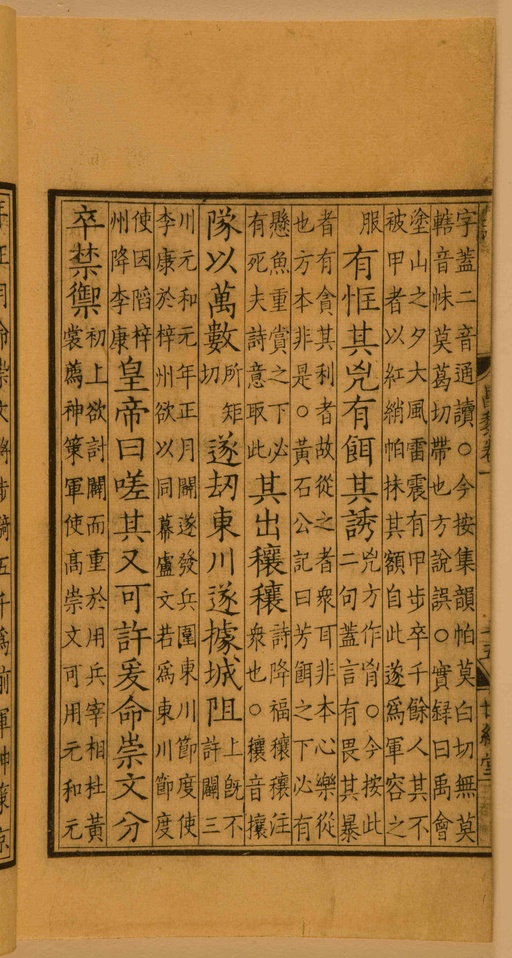 字蓋二音通讀○今按集韻帕莫白切無莫
轄音帓莫葛切帶也方說誤○實録曰禹會
塗山之夕大風雷震有甲步卒千餘人其不
被甲者以紅綃帕抹其額自此遂爲軍容之
服
有恇其兇有餌其誘
兇方作○今按此
二句蓋言有畏其暴
者有貪其利者故從之者衆耳非本心樂從
也方本非是○黃石公記曰芳餌之下必有
懸魚重賞之下必
有死夫詩意取此
其出穰穰
詩降福穰穰注
衆也○穰音攘
隊以萬數
所矩
切
遂刼東川遂據城阻
上旣不
許闢三
川元和元年正月闢遂發兵圍東川節度使
李康於梓州欲以同幕盧文若爲東川節度
使因䧟梓
州降李康
皇帝曰嗟其又可許爰命崇文分
卒禁禦
初上欲討闢而重於用兵宰相杜黃
裳薦神策軍使高崇文可用元和元